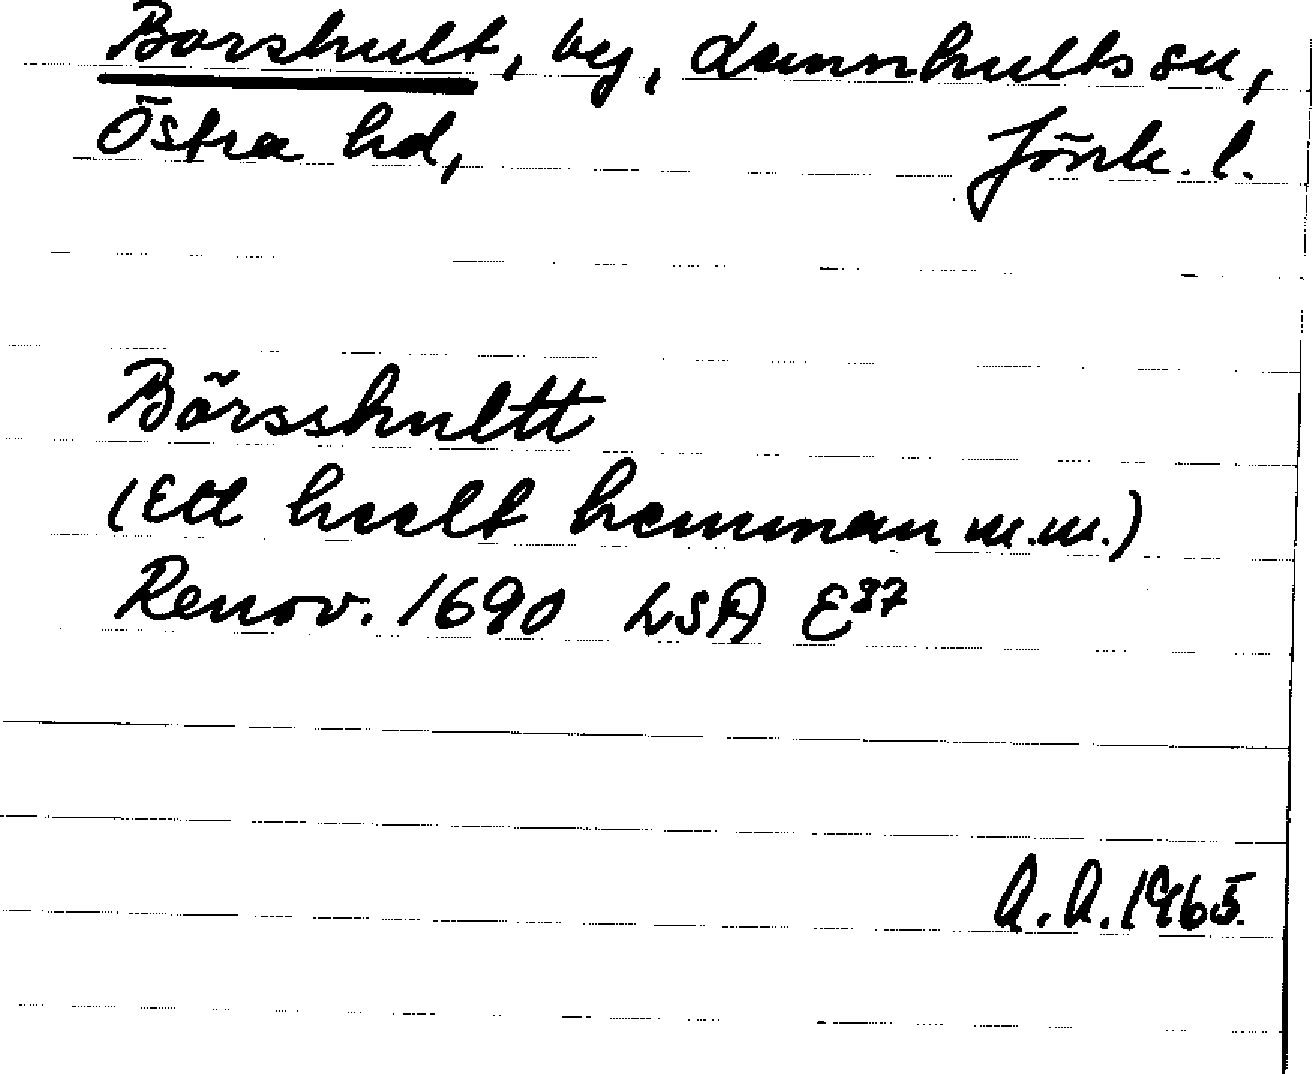 Borshult, by, Lannhults sn,
Östra hd, Jönk. l.
Börsshultt
(Ett heelt hemman m.m.)
Renov. 1690 LSA E³⁷
A.A. 1965.